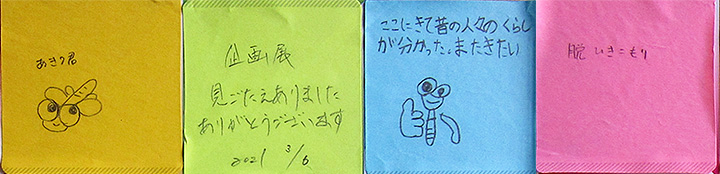 あきつ君
企画展
見ごたえありました
ありがとうございます
2021 3/6
ここにきて昔の人々のくらし
が分かった。またきたい
脱 ひきこもり